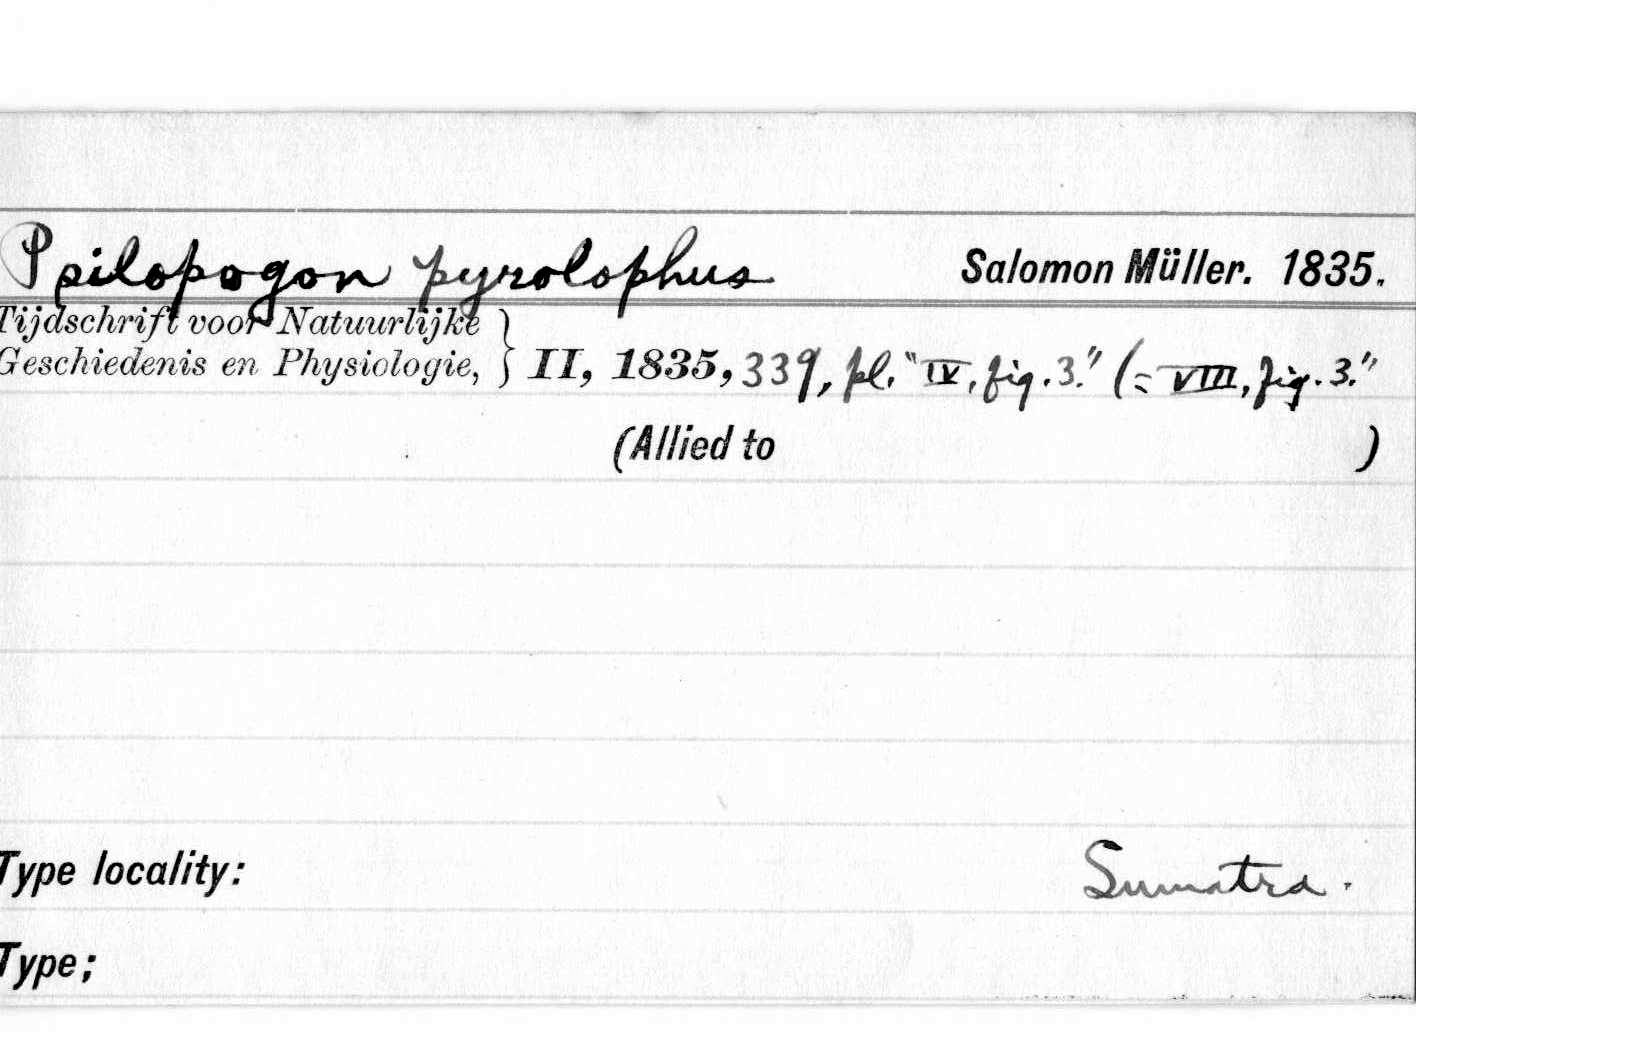 Psilopogon pyrolophus Salomon Müller. 1835.
Tijdschrift voor Natuurlijke
Geschiedenis en Physiologie, } II, 1835, 339, pl. "IV, fig. 3." (= VIII, fig. 3."
(Allied to )
Type locality: Sumatra.
Type;